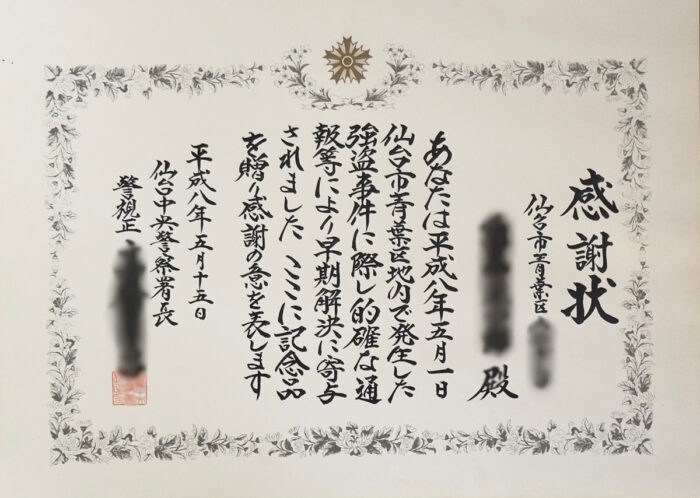 感謝状
仙台市青葉区
殿
あなたは平成八年五月一日
仙台市青葉区地内で発生した
強盗事件に際し的確な通
報等により早期解決に寄与
されました ここに記念品
を贈り感謝の意を表します
平成八年五月十五日
仙台中央警察署長
警視正